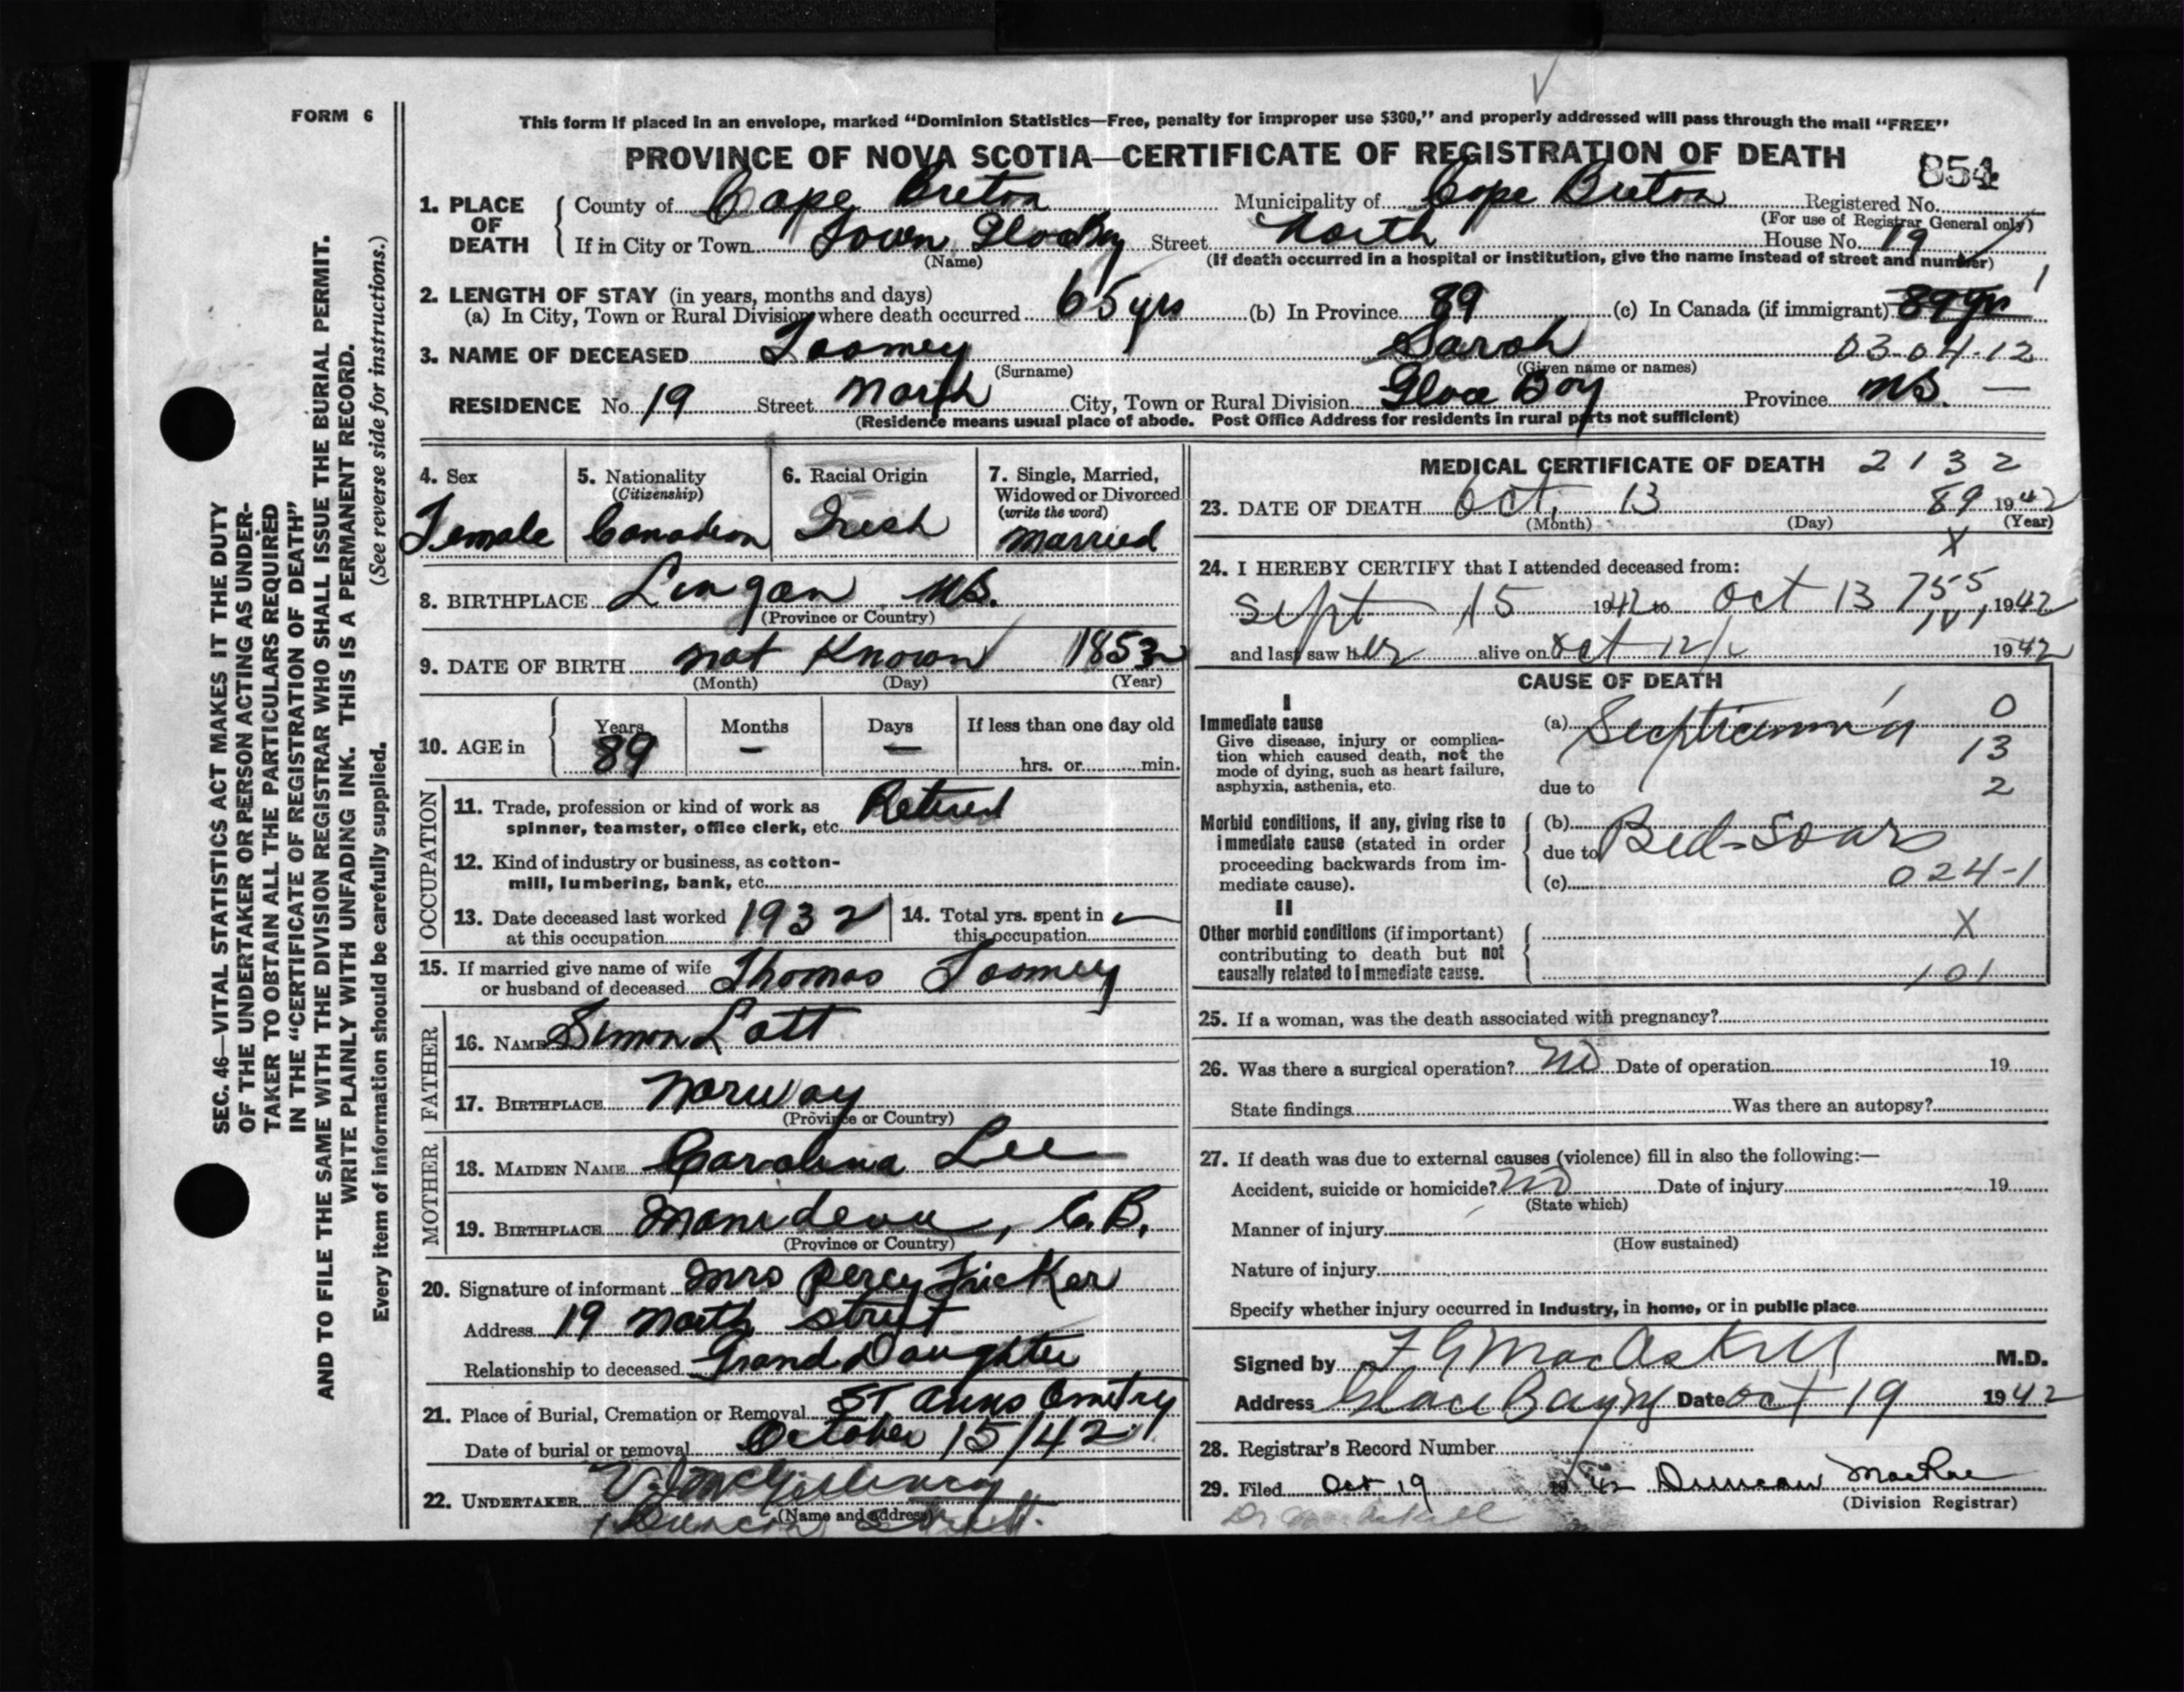 FORM 6
This form if placed in an envelope, marked “Dominion Statistics—Free, penalty for improper use $300,” and properly addressed will pass through the mail “FREE”
PROVINCE OF NOVA SCOTIA—CERTIFICATE OF REGISTRATION OF DEATH
854
1. PLACE OF DEATH { County of Cape Breton Municipality of Cape Breton Registered No.
(For use of Registrar General only)
If in City or Town Town Glace Bay Street North House No. 19
(Name) (If death occurred in a hospital or institution, give the name instead of street and number)
2. LENGTH OF STAY (in years, months and days)
(a) In City, Town or Rural Division where death occurred 65 yrs (b) In Province 89 (c) In Canada (if immigrant) 89 yrs
3. NAME OF DECEASED Toomey Sarah 03-04-12
(Surname) (Given name or names)
RESIDENCE No. 19 Street North City, Town or Rural Division Glace Bay Province N.S. —
(Residence means usual place of abode. Post Office Address for residents in rural parts not sufficient)
4. Sex Female
5. Nationality (Citizenship) Canadian
6. Racial Origin Iresh
7. Single, Married, Widowed or Divorced (write the word) Married
8. BIRTHPLACE Lingan N.S.
(Province or Country)
9. DATE OF BIRTH not Known 1853
(Month) (Day) (Year)
10. AGE in { Years 89 Months — Days — If less than one day old
hrs. or min.
OCCUPATION
11. Trade, profession or kind of work as Retired
spinner, teamster, office clerk, etc.
12. Kind of industry or business, as cotton-
mill, lumbering, bank, etc.
13. Date deceased last worked at this occupation 1932
14. Total yrs. spent in this occupation
15. If married give name of wife or husband of deceased Thomas Toomey
FATHER
16. NAME Simon Lott
17. BIRTHPLACE Norway
(Province or Country)
MOTHER
18. MAIDEN NAME Carolina Lee
19. BIRTHPLACE , C.B.
(Province or Country)
20. Signature of informant Mrs Percy Tricker
Address 19 North Street
Relationship to deceased Grand Daughter
21. Place of Burial, Cremation or Removal ST Anns
Date of burial or removal October 15/42
22. UNDERTAKER V.J. McGillivray
(Name and address)
Duncan Street.
MEDICAL CERTIFICATE OF DEATH 2132
23. DATE OF DEATH Oct. 13 89 1942
(Month) (Day) (Year)
X
24. I HEREBY CERTIFY that I attended deceased from:
Sept 15 1942 to Oct 13 755 1942
and last saw her alive on Oct 12 1942
CAUSE OF DEATH
I
Immediate cause
Give disease, injury or complica-
tion which caused death, not the
mode of dying, such as heart failure,
asphyxia, asthenia, etc.
(a) 0
13
due to 2
Morbid conditions, if any, giving rise to
immediate cause (stated in order
proceeding backwards from im-
mediate cause).
(b) Bed-Soars
due to
(c) 024-1
II
Other morbid conditions (if important)
contributing to death but not
causally related to immediate cause.
X
101
25. If a woman, was the death associated with pregnancy?
26. Was there a surgical operation? No Date of operation 19
State findings Was there an autopsy?
27. If death was due to external causes (violence) fill in also the following:—
Accident, suicide or homicide? No Date of injury 19
(State which)
Manner of injury
(How sustained)
Nature of injury
Specify whether injury occurred in Industry, in home, or in public place
Signed by F G MacAskill M.D.
Address Glace Bay Date Oct 19 1942
28. Registrar's Record Number
29. Filed Oct 19 1942 Duncan MacRae
(Division Registrar)
Dr MacAskill
SEC. 46—VITAL STATISTICS ACT MAKES IT THE DUTY
OF THE UNDERTAKER OR PERSON ACTING AS UNDER-
TAKER TO OBTAIN ALL THE PARTICULARS REQUIRED
IN THE “CERTIFICATE OF REGISTRATION OF DEATH”
AND TO FILE THE SAME WITH THE DIVISION REGISTRAR WHO SHALL ISSUE THE BURIAL PERMIT.
WRITE PLAINLY WITH UNFADING INK. THIS IS A PERMANENT RECORD.
Every item of information should be carefully supplied. (See reverse side for instructions.)